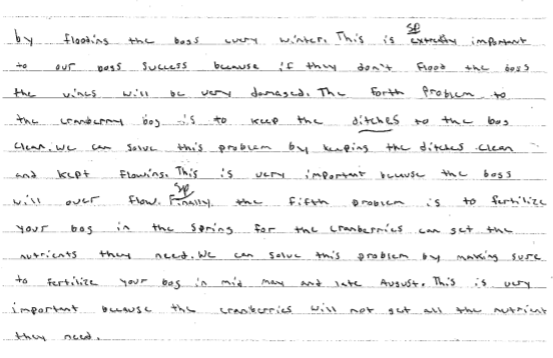 by flooding the bogs every winter. This is sp extreally important
to our bogs success because if they don't flood the bogs
the vines will be very damaged. The forth problem to
the cranberry bog is to keep the ditches to the bog
clean. We can solve this problem by keeping the ditches clean
and kept flowing. This is very important because the bogs
will over flow. sp Finally the fifth problem is to fertilize
your bog in the spring for the cranberries can get the
nutrients they need. We can solve this problem by making sure
to fertilize your bog in mid may and late August. This is very
important because the cranberries will not get all the nutrient
they need.